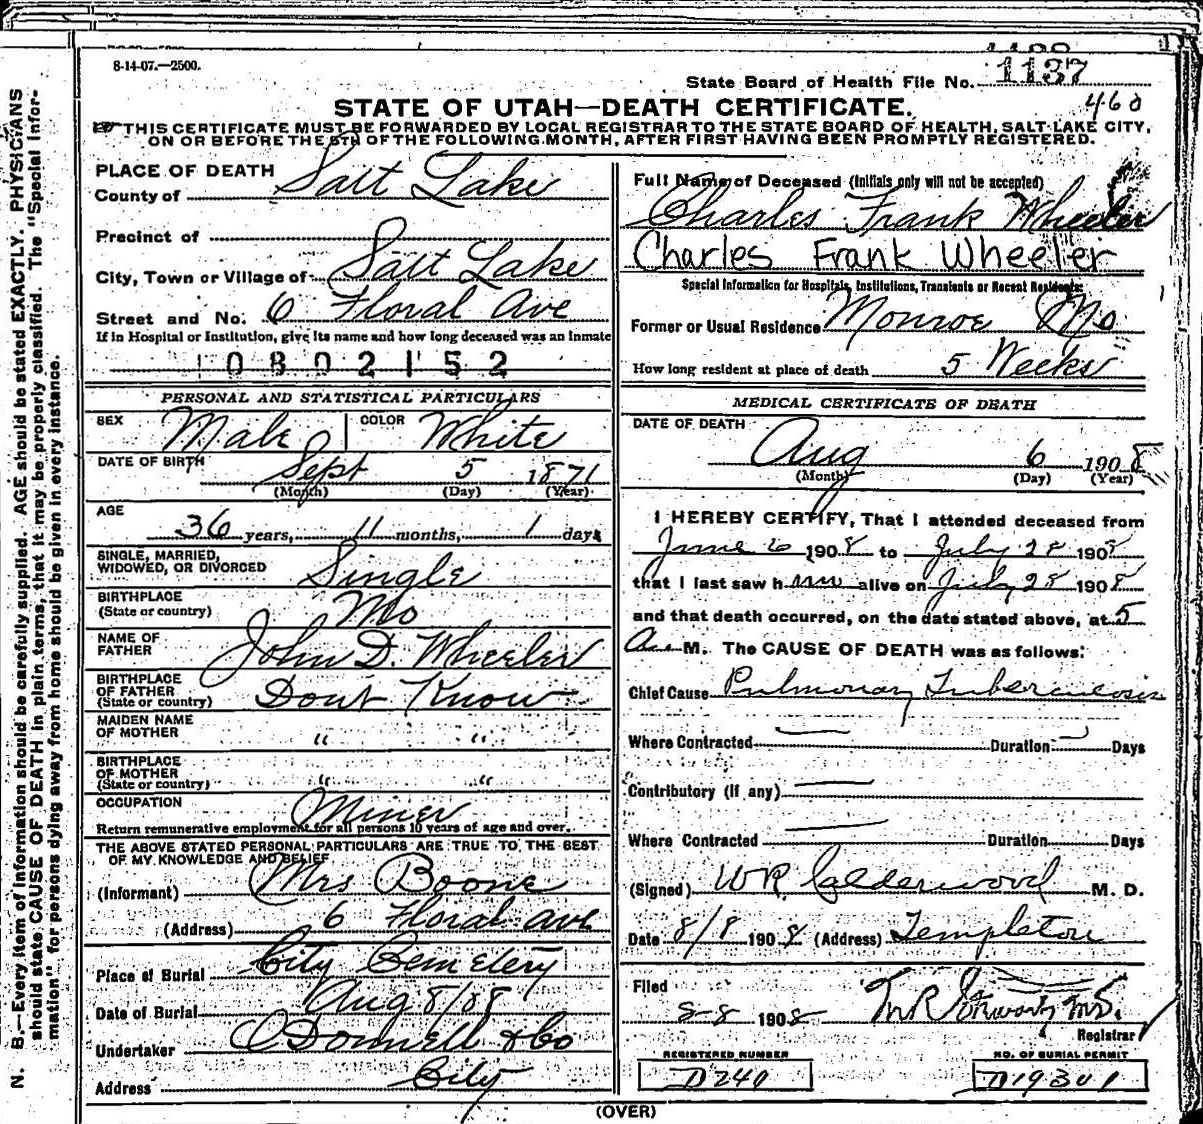 8-14-07.—2500.
State Board of Health File No. 1137
STATE OF UTAH—DEATH CERTIFICATE.
460
THIS CERTIFICATE MUST BE FORWARDED BY LOCAL REGISTRAR TO THE STATE BOARD OF HEALTH, SALT LAKE CITY,
ON OR BEFORE THE 5TH OF THE FOLLOWING MONTH, AFTER FIRST HAVING BEEN PROMPTLY REGISTERED.
N. B.—Every item of information should be carefully supplied. AGE should be stated EXACTLY. PHYSICIANS
should state CAUSE OF DEATH in plain terms, that it may be properly classified. The "Special Infor-
mation" for persons dying away from home should be given in every instance.
PLACE OF DEATH
County of Salt Lake
Precinct of
City, Town or Village of Salt Lake
Street and No. 6 Floral Ave
If in Hospital or Institution, give its name and how long deceased was an inmate
0802152
PERSONAL AND STATISTICAL PARTICULARS
SEX Male COLOR White
DATE OF BIRTH Sept 5 1871
(Month) (Day) (Year)
AGE
36 years, 11 months, 1 days
SINGLE, MARRIED,
WIDOWED, OR DIVORCED Single
BIRTHPLACE
(State or country) Mo
NAME OF
FATHER John D. Wheeler
BIRTHPLACE
OF FATHER
(State or country) Dont Know
MAIDEN NAME
OF MOTHER " "
BIRTHPLACE
OF MOTHER
(State or country) " "
OCCUPATION Miner
Return remunerative employment for all persons 10 years of age and over.
THE ABOVE STATED PERSONAL PARTICULARS ARE TRUE TO THE BEST
OF MY KNOWLEDGE AND BELIEF
(Informant) Mrs Boone
(Address) 6 Floral ave
Place of Burial City Cemetery
Date of Burial Aug 8/08
Undertaker O'Donnell & Co
Address City
Full Name of Deceased (Initials only will not be accepted)
Charles Frank Wheeler
Charles Frank Wheeler
Special Information for Hospitals, Institutions, Transients or Recent Residents:
Former or Usual Residence Monroe Mo
How long resident at place of death 5 Weeks
MEDICAL CERTIFICATE OF DEATH
DATE OF DEATH
Aug 6 1908
(Month) (Day) (Year)
I HEREBY CERTIFY, That I attended deceased from
June 6 1908 to July 28 1908
that I last saw him alive on July 28 1908
and that death occurred, on the date stated above, at 5
A. M. The CAUSE OF DEATH was as follows:
Chief Cause Pulmonary Tuberculosis
Where Contracted — Duration — Days
Contributory (if any) —
Where Contracted — Duration Days
(Signed) WR Calderwood M. D.
Date 8/8 1908 (Address) Templeton
Filed
8-8 1908
Registrar
REGISTERED NUMBER
D240
NO. OF BURIAL PERMIT
D19301
(OVER)